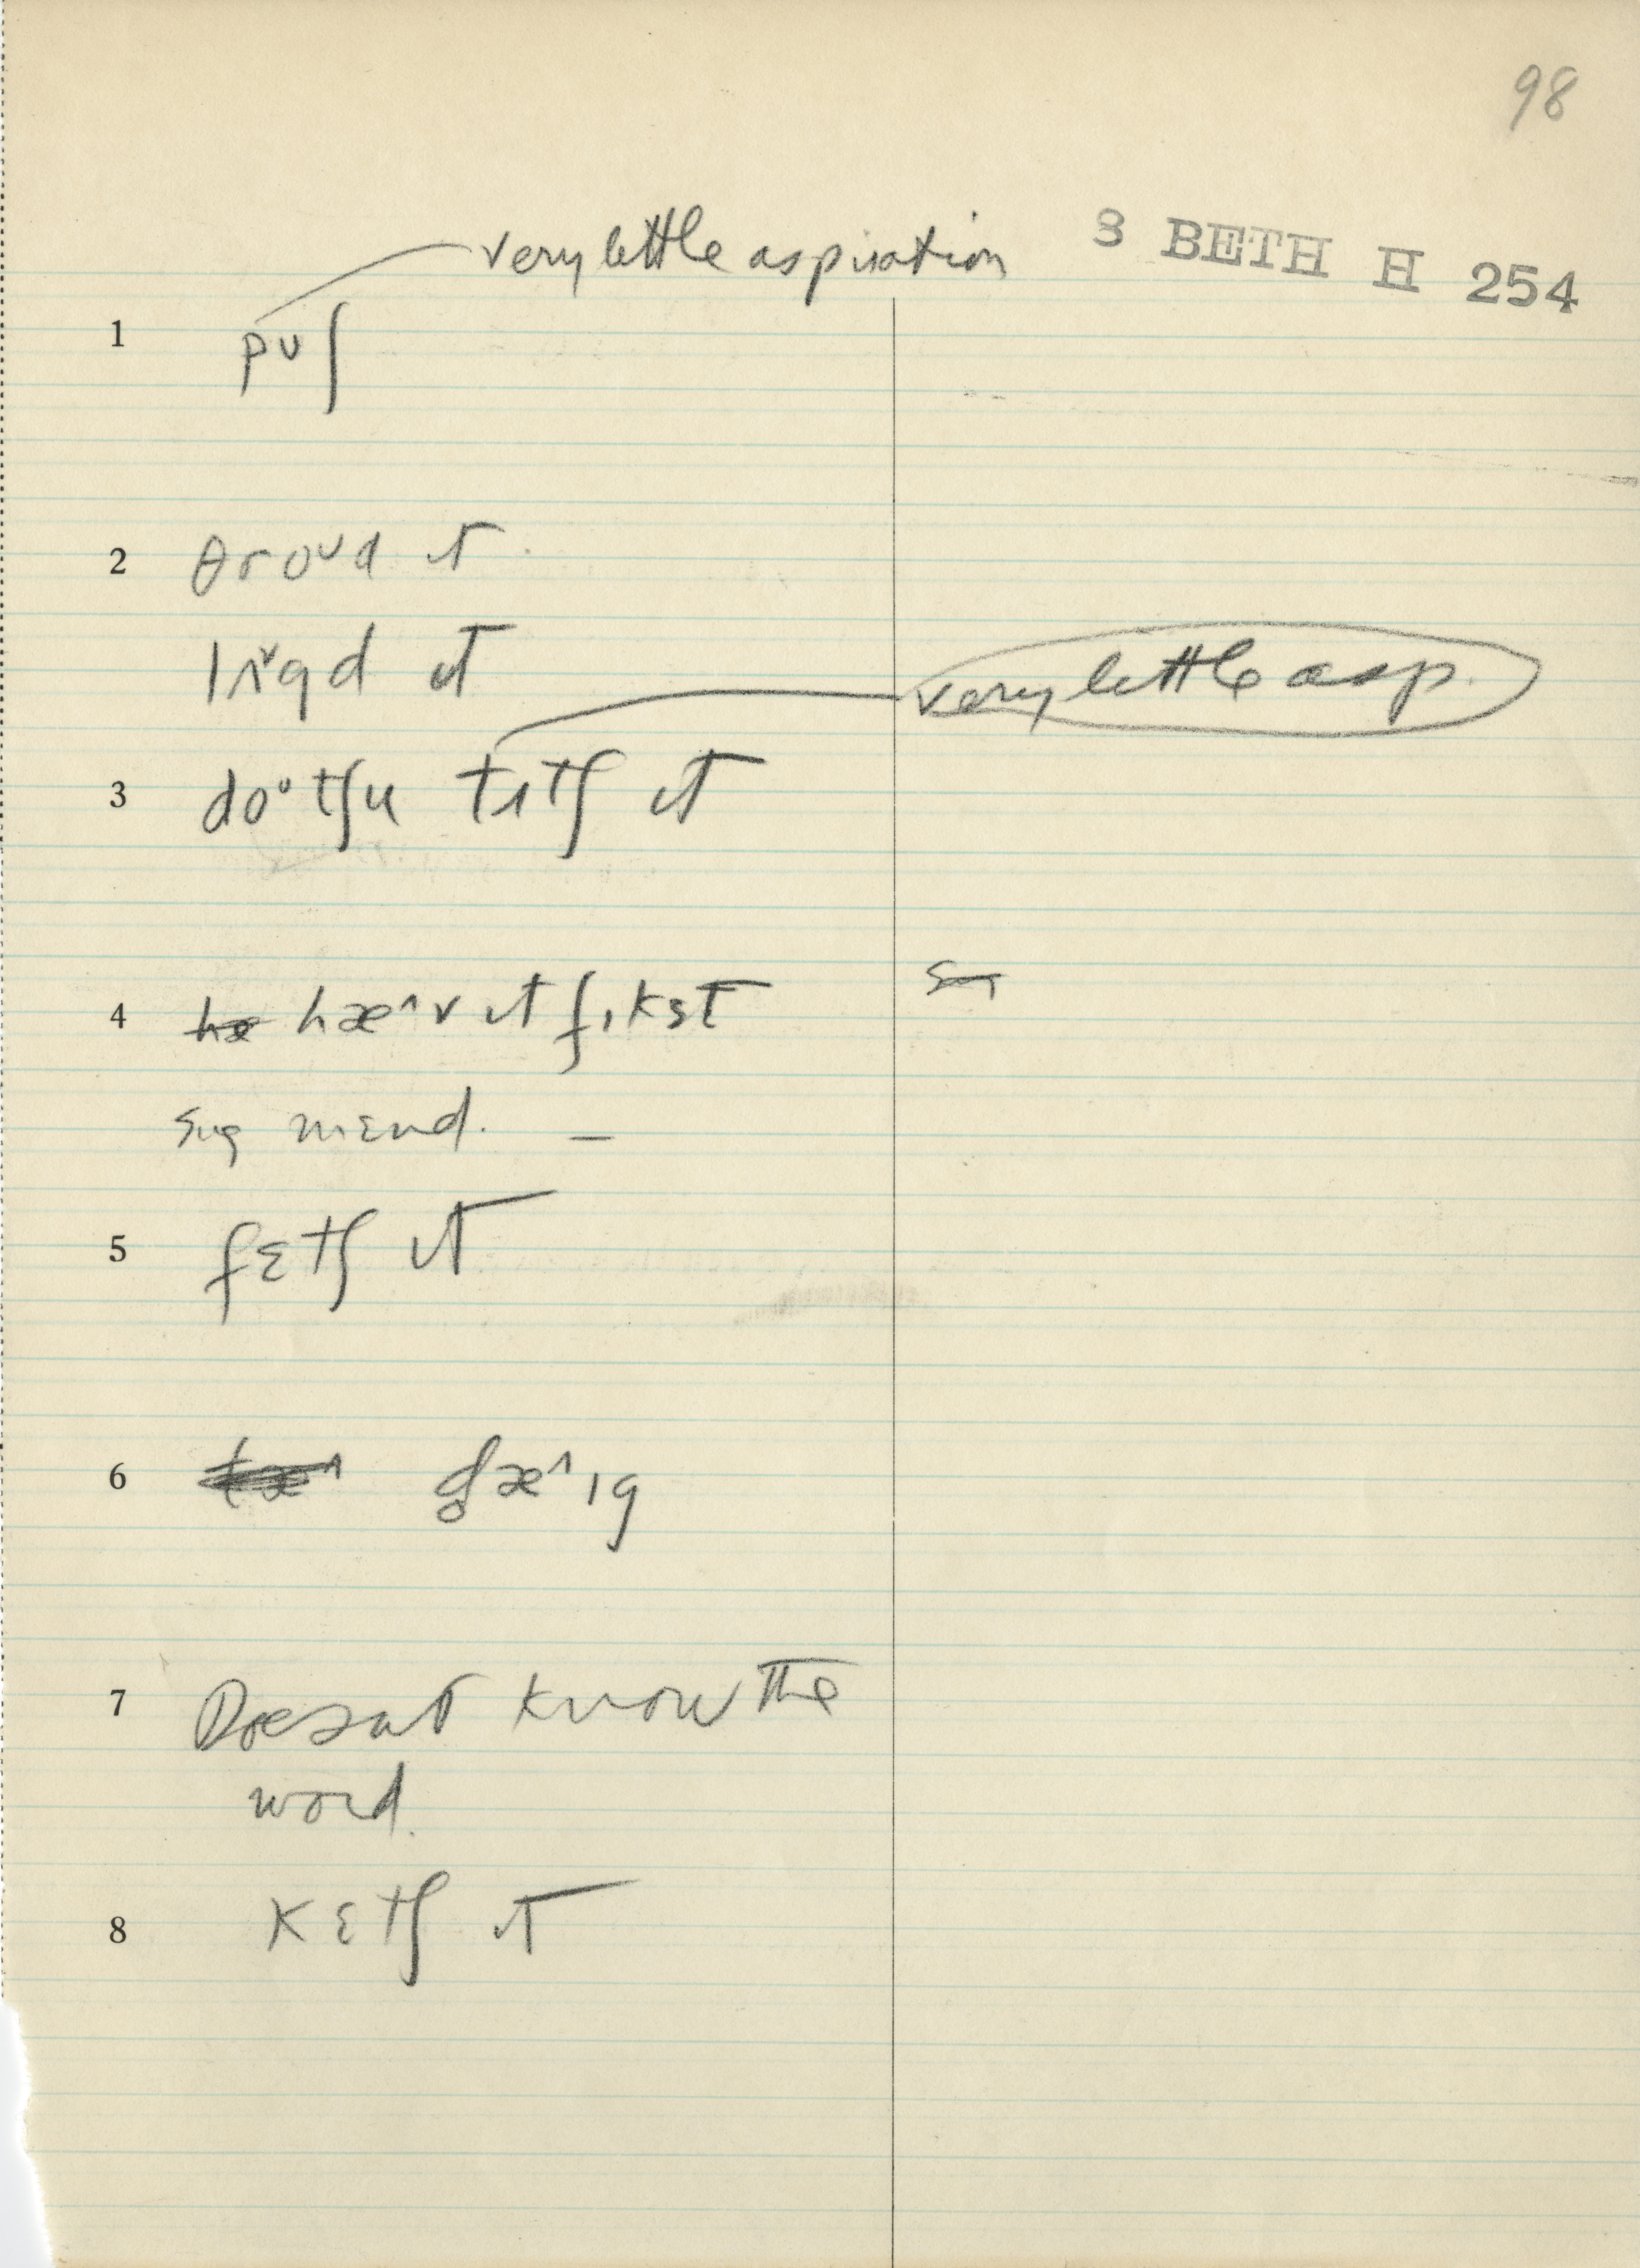 98
very little aspiration
8 BETH H 254
1 pʊʃ
2 θroʊd ɪt
very little asp.
3 do ͧ tʃu tʌtʃ ɪt
4 hæ hæ^v ɪt fɪkst
sug mɛnd. –
5 fɛtʃ ɪt
6
7 Doesnt know the
word.
8 kɛtʃ ɪt